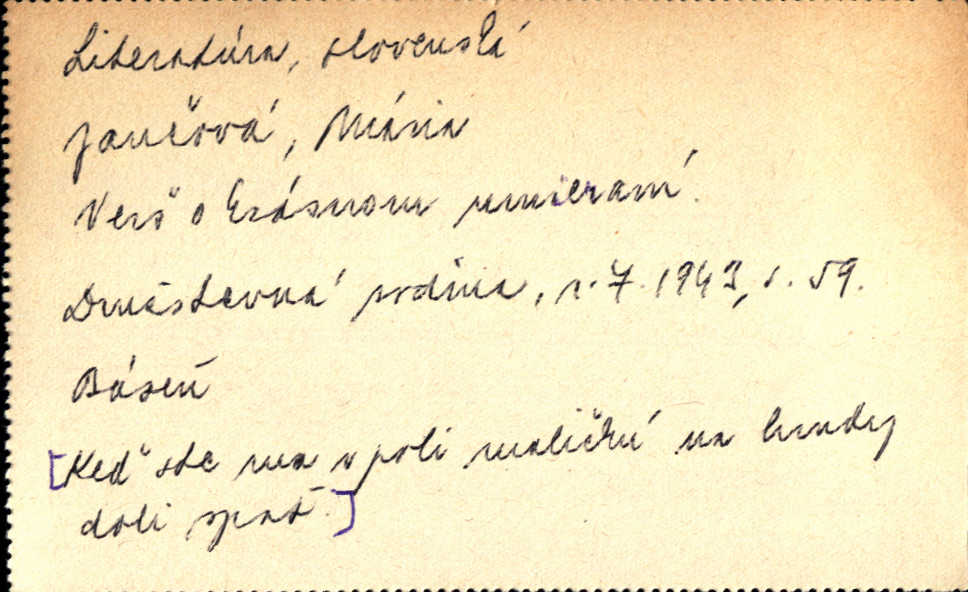 Literatúra, slovenská
Jančová, Mária
Verš o krásnom umieraní.
Družstevná rodina, r. 7. 1943, s. 59.
Báseň
[Keď ste ma v poli maličkú na hrudy
dali spať.]